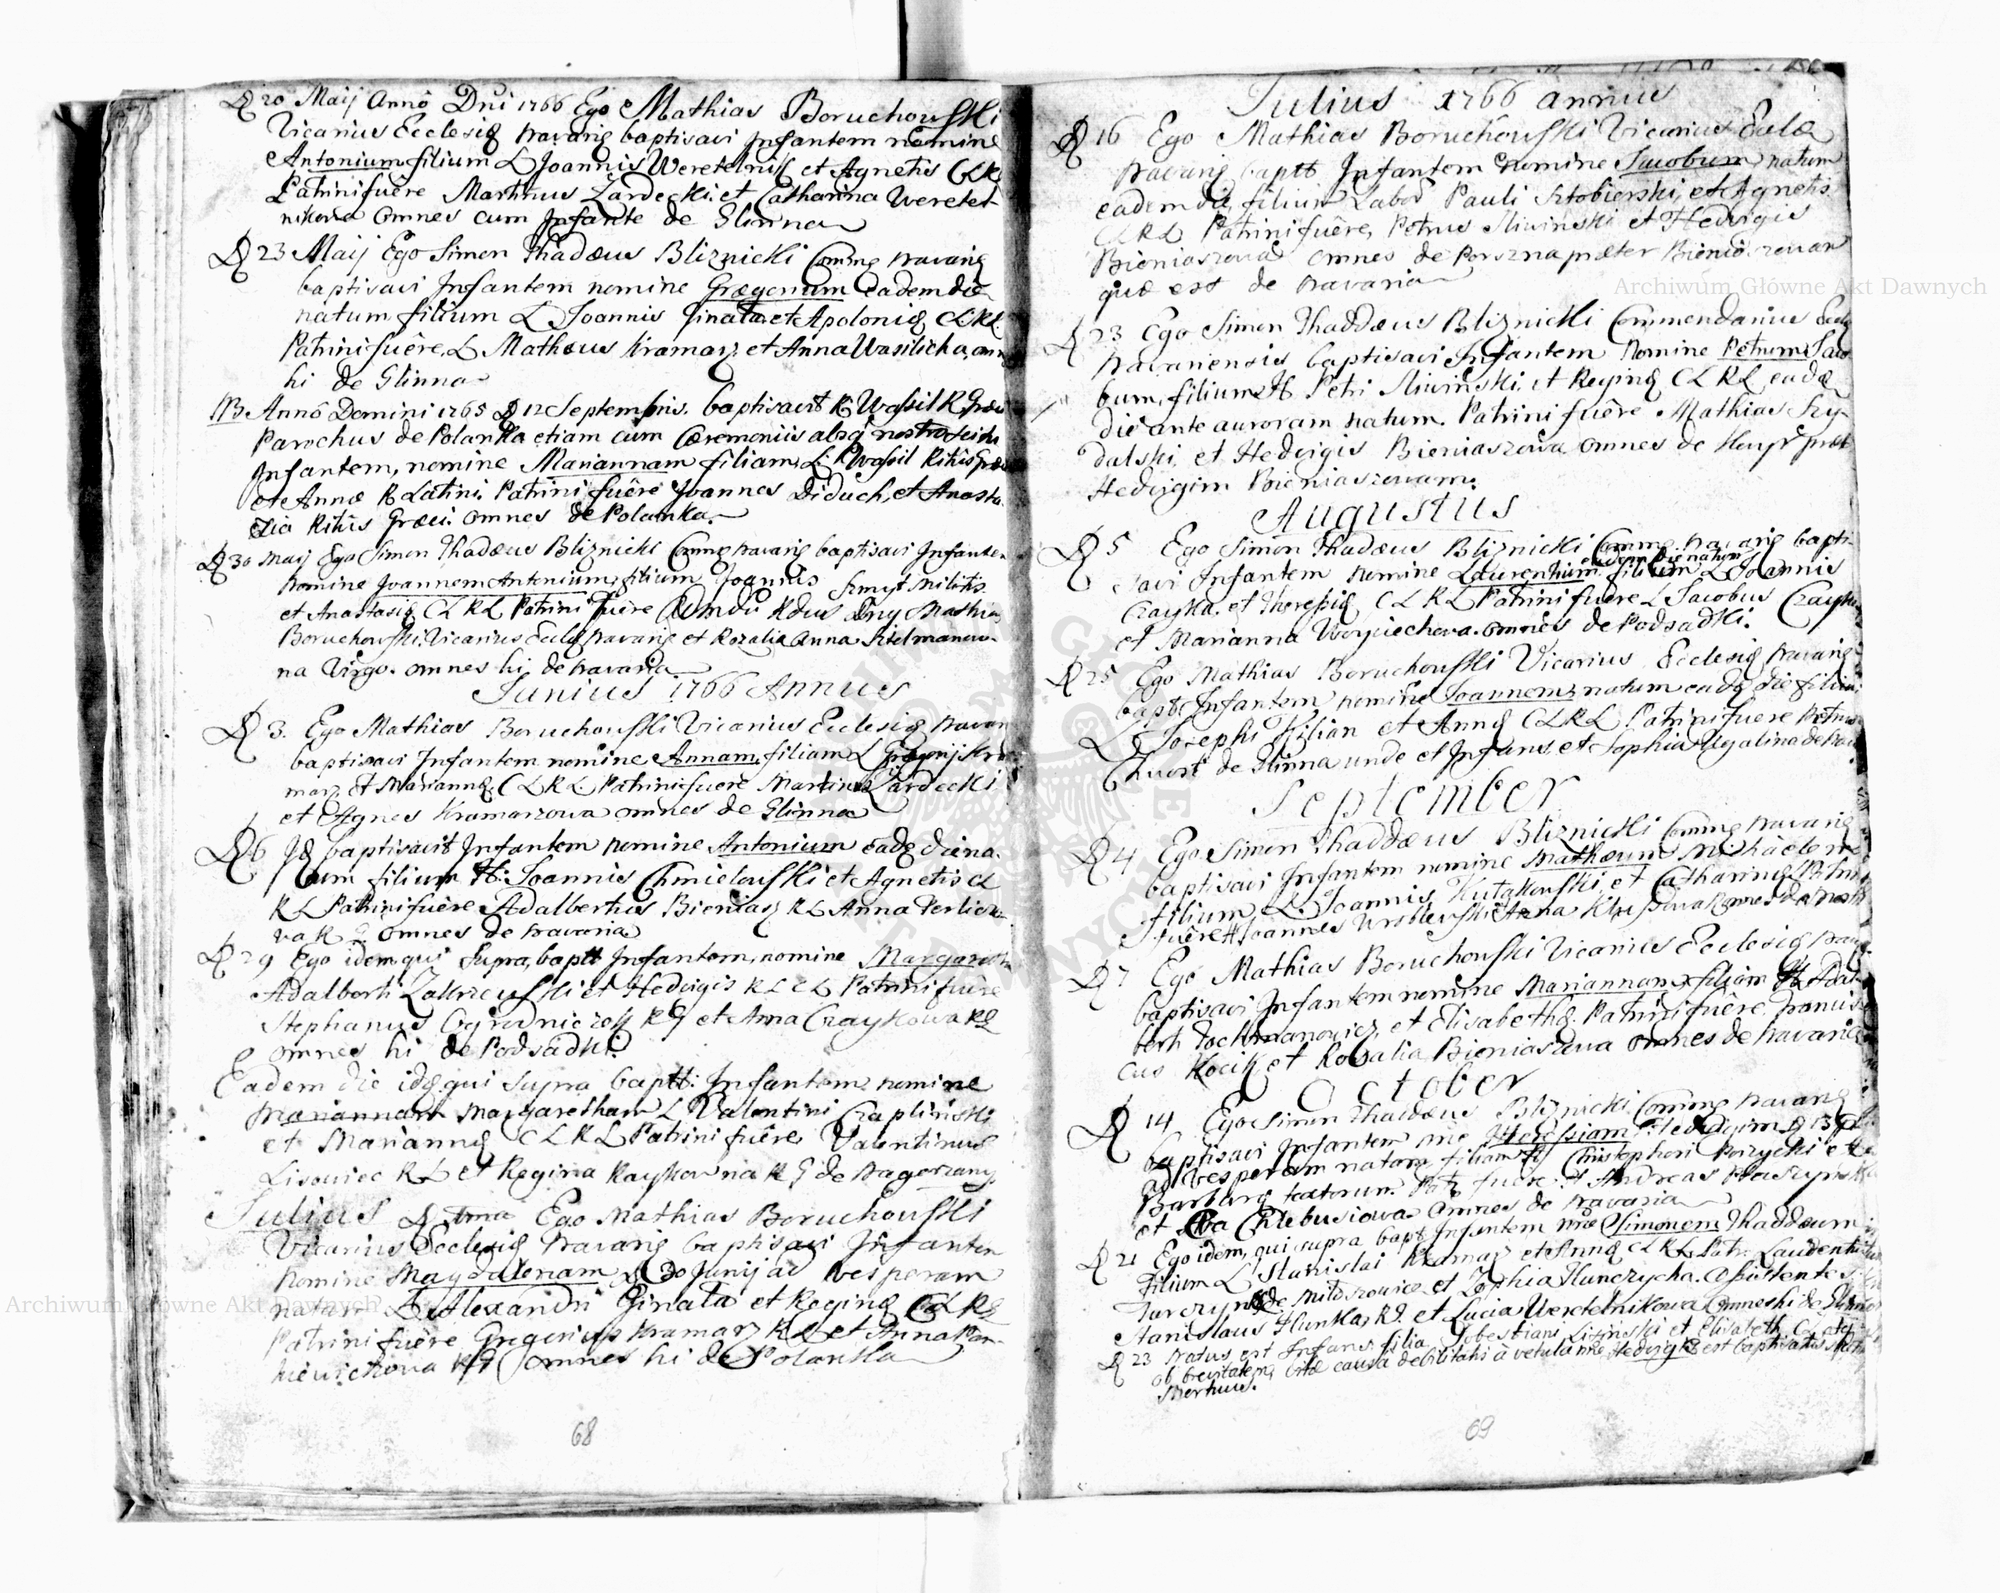 D 20 Maij Annô Dni 1766 Ego Mathias Boruchowski
Vicarius Ecclesiæ Navariæ baptisavi Infantem nomine
Antonium filium L Joannis Weretelnik et Agnetis CLRL
Patrini fuêre Martinus Zardecki et Catharina Weretel-
nikowa omnes cum Infante de Glinna
D 23 Maij Ego Simon Thadæus Bliznicki Comms Navariæ
baptisavi Infantem nomine Grægorium eadem die
natum filium L Joannis Ginata et Apoloniæ CLRL
Patrini fuêre L Mathæus Kramarz et Anna Wasilicha, omn
hi de Glinna
NB Annô Domini 1765 D 12 Septembris baptisavit R Wasil R Græci
Parochus de Polanka etiam cum Cæremoniis absq nostro scitu
Infantem, nomine Mariannam filiam L Wasil Ritus Græci
et Annæ R Latini. Patrini fuêre Joannes Diduch, et Anasta
zia Ritus Græci omnes de Polanka
D 30 Maij Ego Simon Thadæus Bliznicki Comms Navariæ baptisavi Infantem
nomine Joannem Antonium, filium Joannis Szmyt Militis
et Anastasiæ CLRL Patrini fuêre Admdu Rdus Dny Mathias
Boruchowski Vicarius Ecclæ Navariæ et Rozalia Anna Kielmanow-
na Virgo. omnes hi de Navaria
Junius 1766 Annus
D 3. Ego Mathias Boruchowski Vicarius Ecclesiæ Navar
baptisavi Infantem nomine Annam, filiam L Gregorij Kra
marz et Mariannæ CLRL Patrini fuere Martinus Zardecki
et Agnes Kramarzowa omnes de Glinna
D 6 Id baptisavit Infantem nomine Antonium eadæ die na-
tum filium H: Joannis Chmielowski et Agnetis CL
RL Patrini fuêre Adalbertus Bieniasz RL Anna Perlicko
wa R G omnes de Navaria
D 29 Ego idem qui supra, baptt Infantem, nomine Margaretham
Adalberti Zakrzewski et Hedvigis RL CL Patrini fuêre
Stephanus Ogrodniczek RG et Anna Czaykowa RG
omnes hi de Podsadki
Eadem die idē qui supra baptt: Infantem nomine
Mariannam Margaretham L Valentini Czapliński
et Mariannæ CLRL Patrini fuêre Valentinus
Lisowiec RL et Regina Kaykowna RG de Nagorzany
Julius D 1ma Ego Mathias Boruchowski
Vicarius Ecclesiæ Navariæ baptisavi Infantem
nomine Magdalenam D 30 Junij ad vesperam
natam L Alexandri Ginata et Reginæ CLRG
Patrini fuêre Gregorius Kramarz RL et Anna Pan-
kiewichowa RG omnes hi de Polanka
68
Julius 1766 annus
D 16 Ego Mathias Boruchowski Vicarius Ecclæ
Navariæ baptt Infantem nomine Jacobum natum
eadem die, filium Labor Pauli Sztobierski, et Agnetis
CLRL Patrini fuêre, Petrus Sliwinski et Hedvigis
Bieniaszowa omnes de Porszna præter Bieniaszowam
quæ est de Navaria
D 23 Ego Simon Thaddæus Bliznicki Commendarius Eccle
Navariensis baptisavi Infantem Nomine Petrum Jaco
bum, filium H Petri Sliwiński, et Reginæ CLRL eadæ
die ante auroram natum. Patrini fuêre Mathias Szy-
dalski et Hedvigis Bieniaszowa omnes de præt
Hedvigim Bieniaszowam.
Augustus
D 5 Ego Simon Thadæus Bliznicki Comms Navariæ bapti-
eadem die natum
savi Infantem nomine Laurentium filium L Joannis
Czayka et Theresiæ CLRL Patrini fuêre L Jacobus Czayka
et Marianna Woyciechowa omnes de Podsadki.
D 25 Ego Mathias Boruchowski Vicarius Ecclesiæ Navariæ
bapt Infantem nomine Joannem, natum eadē die filium
L Josephi Kilian et Annæ CLRL Patrini fuere Petrus
Chwost de Glinna unde et Infans et Sophia de Nava
September
D 4 Ego Simon Thaddæus Bliznicki Comms Navariæ
baptisavi Infantem nomine Mathæum Michaëlem
filium L Joannis et Catharinæ Patrini
fuêre H Joannes Wroblewski Anna omnes de Navar
D 7 Ego Mathias Boruchowski Vicarius Ecclesiæ Nava
baptisavi Infantem nomine Mariannam filiam H Adal-
berti Tochmanowicz, et Elisabethæ Patrini fuêre Francis
cus Kocik et Rozalia Bieniaszowa omnes de Navaria
October
D 14 Ego Simon Thaddæus Bliznicki Comms Navariæ
baptisavi Infantem nne Theressiam Hedvigim D 13
ad vesperam natam filiam H Christophori Porzycki et
Barbaræ Patr fuere H Andreas
et Eva Chlebusiowa omnes de Navaria
D 21 Ego idem, qui supra bapt Infantem nne Simonem Thaddæum
filium L Stanislai Kramarz et Annæ CLRL Patr: Laudenti
Jurczyn de Milosowice et Zophia Hunczycha. Assistentes
Stanislaus Hunka, RG et Lucia Weretelnikowa omnes hi de Glinna
D 23 Natus est Infans filia Sebestiani Lisinski et Elisabeth
ob brevitatem, vitæ causa debilitatis à vetula nne Hedvigis est baptisatus
Mortuus.
69
Archiwum Główne Akt Dawnych
Archiwum Główne Akt Dawnych